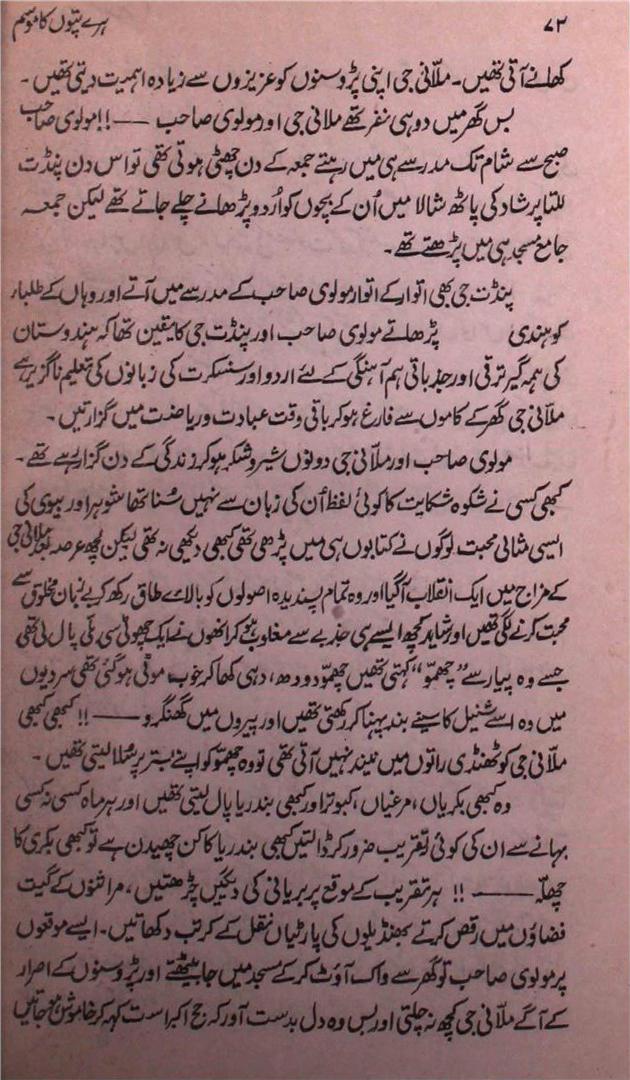 ۷۲
ہرے پتوں کا موسم
کھانے آتی تھیں۔ ملّانی جی اپنی پڑوسنوں کو عزیزوں سے زیادہ اہمیت دیتی تھیں۔
بس گھر میں دو ہی نفر تھے ملانی جی اور مولوی صاحب ——!! مولوی صاحب
صبح سے شام تک مدرسے ہی میں رہتے جمعہ کے دن چھٹی ہوتی تھی تو اس دن پنڈت
للتا پرشاد کی پاٹھ شالا میں اُن کے بچوں کو اُردو پڑھانے چلے جاتے تھے لیکن جمعہ
جامع مسجد ہی میں پڑھتے تھے۔
پنڈت جی بھی اتوار کے اتوار مولوی صاحب کے مدرسے میں آتے اور وہاں کے طلباء
کو ہندی پڑھاتے مولوی صاحب اور پنڈت جی کا یقین تھا کہ ہندوستان
کی ہمہ گیر ترقی اور جذباتی ہم آہنگی کے لئے اردو اور سنسکرت کی زبانوں کی تعلیم ناگزیر ہے
ملّانی جی گھر کے کاموں سے فارغ ہو کر باقی وقت عبادت و ریاضت میں گزارتیں۔
مولوی صاحب اور ملّانی جی دونوں شیر و شکر ہو کر زندگی کے دن گزار رہے تھے۔
کبھی کسی نے شکوہ شکایت کا کوئی لفظ اُن کی زبان سے نہیں سُنا تھا شوہر اور بیوی کی
ایسی مثالی محبت لوگوں نے کتابوں ہی میں پڑھی تھی کبھی دیکھی نہ تھی لیکن کچھ عرصہ بعد ملانی جی
کے مزاج میں ایک انقلاب آگیا اور وہ تمام پسندیدہ اصولوں کو بالائے طاق رکھ کر بے زبان مخلوق سے
محبت کرنے لگی تھیں اور شاید کچھ ایسے ہی جذبے سے مغلوب ہو کر انھوں نے ایک چھوٹی سی بلّی پال لی تھی
جسے وہ پیار سے "چھمّو" کہتی تھیں چھمّو دودھ، دہی کھا کر خوب موٹی ہو گئی تھی سردیوں
میں وہ اسے شنیل کا سینے بند پہنا کر رکھتی تھیں اور پیروں میں گھنگرو ——!! کبھی کبھی
ملّانی جی کو ٹھنڈی راتوں میں نیند نہیں آتی تھی تو وہ چھمّو کو اپنے بستر پر سُلا لیتی تھیں۔
وہ کبھی بکریاں، مرغیاں، کبوتر اور کبھی بندریا پال لیتی تھیں اور ہر ماہ کسی نہ کسی
بہانے سے ان کی کوئی تقریب ضرور کر ڈالتیں کبھی بندریا کا کن چھیدن ہے تو کبھی بکری کا
چھلّہ ——!! ہر تقریب کے موقع پر بریانی کی دیگیں چڑھتیں، مراشنوں کے گیت
فضاؤں میں رقص کرتے بھنڈیلوں کی پارٹیاں نقل کے کرتب دکھاتیں۔ ایسے موقعوں
پر مولوی صاحب تو گھر سے واک آؤٹ کر کے مسجد میں جا بیٹھتے اور پڑوسنوں کے اصرار
کے آگے ملّانی جی کچھ نہ چلتی اور بس وہ دل بدست آور کہ حج اکبر است کہہ کر خاموش ہو جاتیں